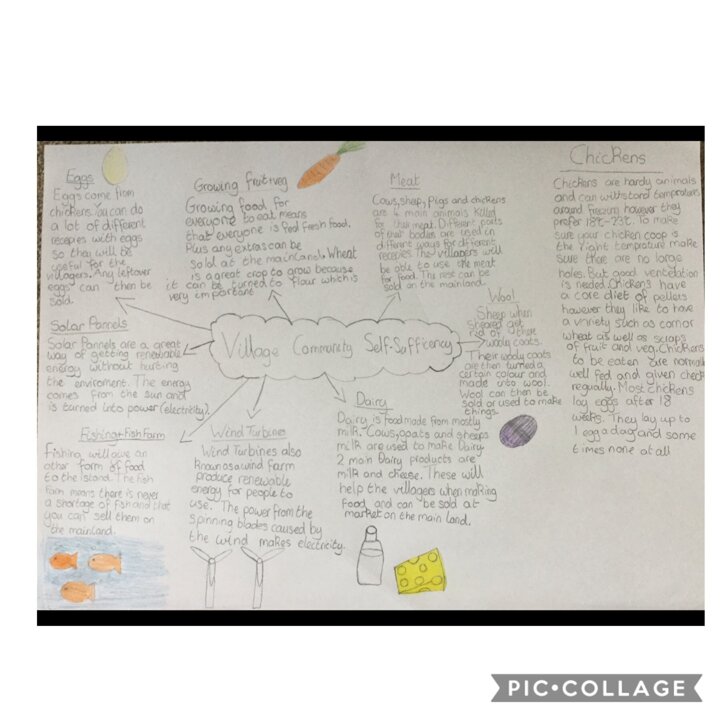 Eggs
Eggs come from
chickens. You can do
a lot of different
recepies with eggs
so they will be
useful for the
villagers. Any leftover
eggs can then be
sold.
Growing fruit+veg
Growing food for
everyone to eat means
that everyone is fed fresh food.
Plus any extras can be
sold at the mainland. Wheat
is a great crop to grow because
it can be turned to flour which is
very important
Meat
Cows, sheep, Pigs and chickens
are 4 main animals killed
for their meat. Different parts
of their bodies are used in
different ways for different
recepies. The villagers will
be able to use the meat
for food. The rest can be
sold on the mainland.
Chickens
Chickens are hardy animals
and can withstand tempratures
around freezing however they
prefer 18°C-23°C. To make
sure your chicken coop is
the right temprature make
sure there are no large
holes. But good ventelation
is needed. Chickens have
a core diet of pellets
however they like to have
a variety such as corn or
wheat as well as scraps
of fruit and veg. Chickens
to be eaten are normally
well fed and given check
regually. Most chickens
lay eggs after 18
weeks. They lay up to
1 egg a day and some
times none at all
Wool
Sheep when
sheared get
rid of there
wooly coats.
Their wooly coats
are then turned a
certain colour and
made into wool.
Wool can then be
sold or used to make
things.
Solar Pannels
Solar Pannels are a great
way of getting renewable
energy without hurting
the enviroment. The energy
comes from the sun and
is turned into power (electricity).
Village Community Self-Safficency
Fishing+Fish Farm
Fishing will give an
other form of food
to the island. The fish
farm means there is never
a shortage of fish and that
you can sell them on
the mainland.
Wind Turbines
Wind Turbines also
known as a wind farm
produce renewable
energy for people to
use. The power from the
spinning blades caused by
the wind makes electricity.
Dairy
Dairy is food made from mostly
milk. Cows, goats and sheeps
milk are used to make Dairy.
2 main Dairy products are
milk and cheese. These will
help the villagers when making
food and can be sold at
market on the main land.
PIC•COLLAGE